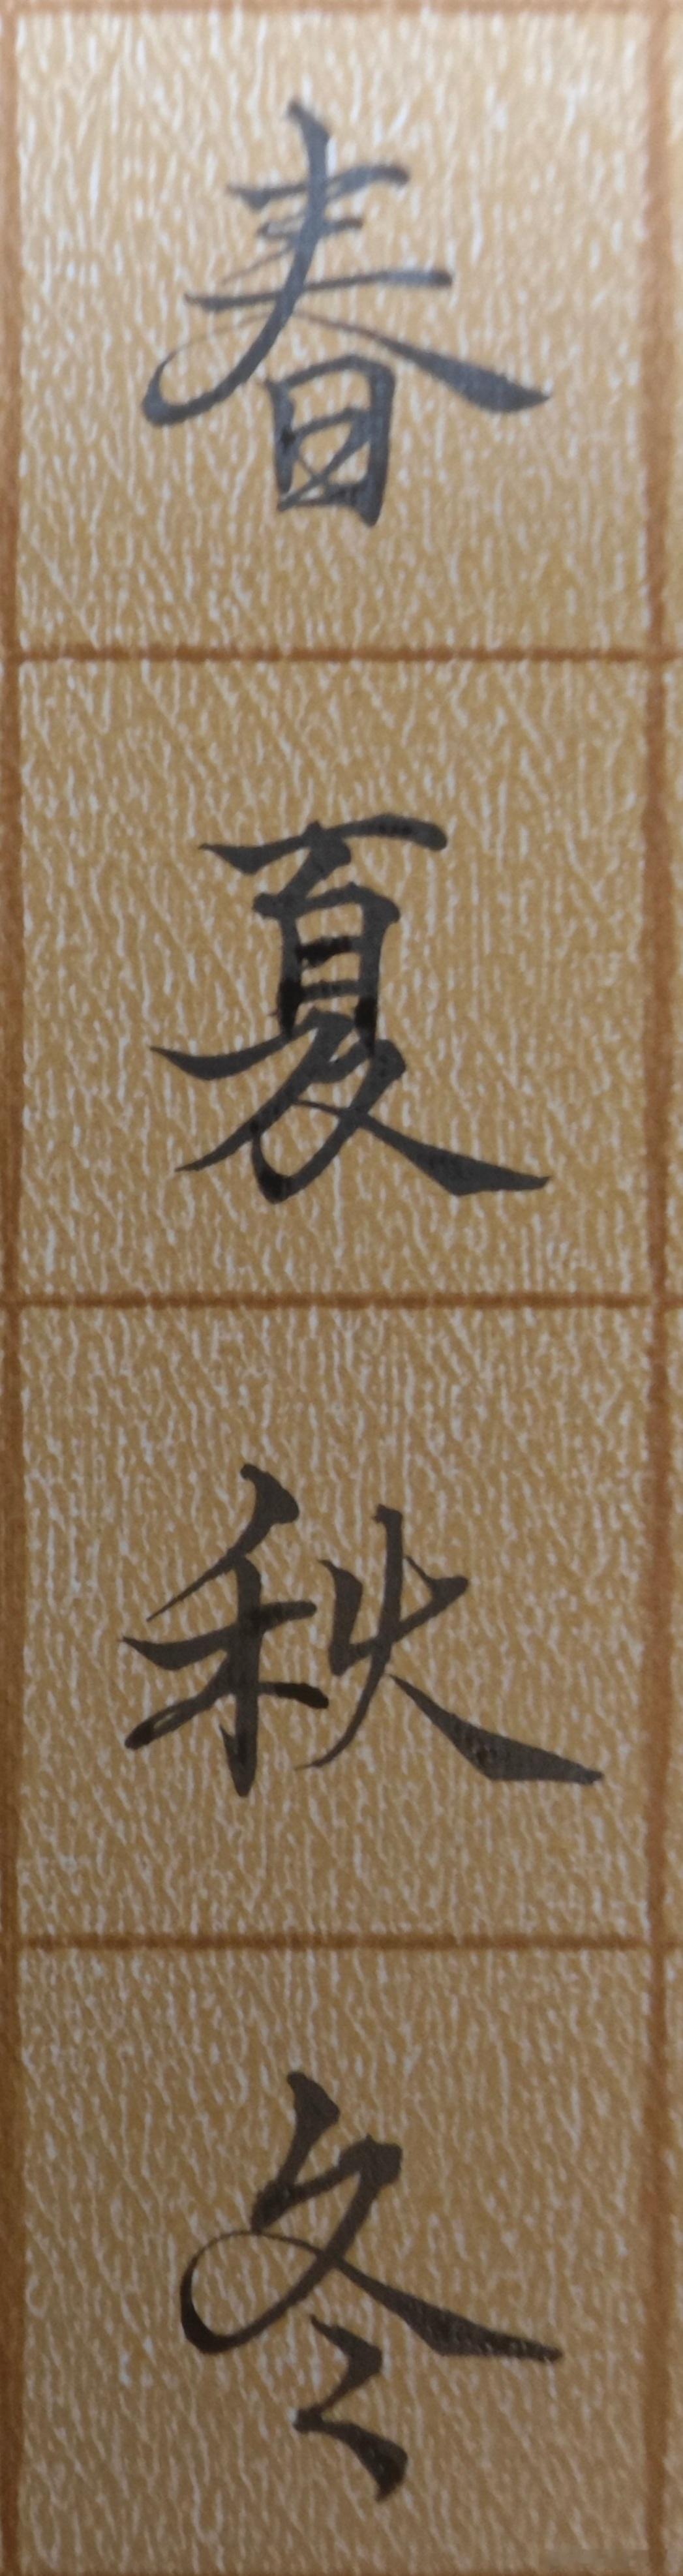 春夏秋冬